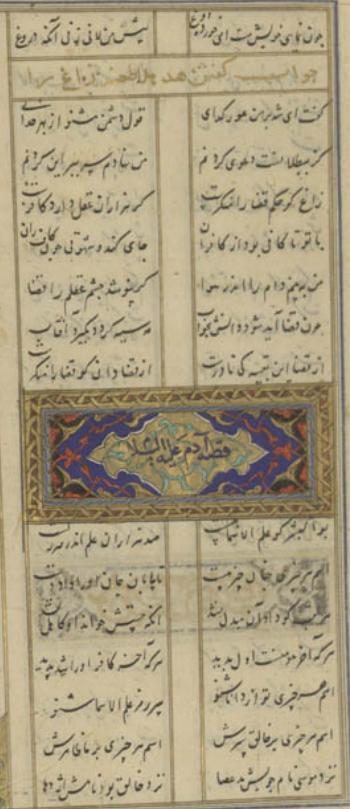 چون نمایی خویش مست ای خورده دوغ پیش من لافی زنی آنکه دروغ
جواب گفتن هدهد طعنه زاغ را
گفت ای شه بر من عور گدای قول دشمن مشنو از بهر خدای
گر ببطلانست دعوی کردنم من نهادم سر ببر این گردنم
زاغ کو حکم قضا را منکرست گر هزاران عقل دارد کافرست
با تو تا کافی بود از کافران جای گند و شهوتی چون کاف ران
من ببینم دام را اندر هوا گر نپوشد چشم عقلم را قضا
چون قضا آید شود دانش بخواب مه سیه گردد بگیرد آفتاب
از قضا این تعبیه کی نادرست از قضا دانی کو قضا را منکرست
قصه آدم علیه السلام
بوالبشر کو علم الاسما صد هزاران علم اندر هر رگست
اسم هر چیزی چنان چیز هست تا پایان جان او را داد دست
هر لقب کو داد آن مبدل نشد آنکه چستش خواند او کاهل نشد
هر که آخر مومنست اول بدید هر که آخر کافر او را شد پدید
اسم هر چیزی تو از دانا شنو سر رمز علم الاسما شنو
اسم هر چیزی بر خالق سرش اسم هر چیزی بر ما ظاهرش
نزد موسی نام چوبش بد عصا نزد خالق بود نامش اژدها